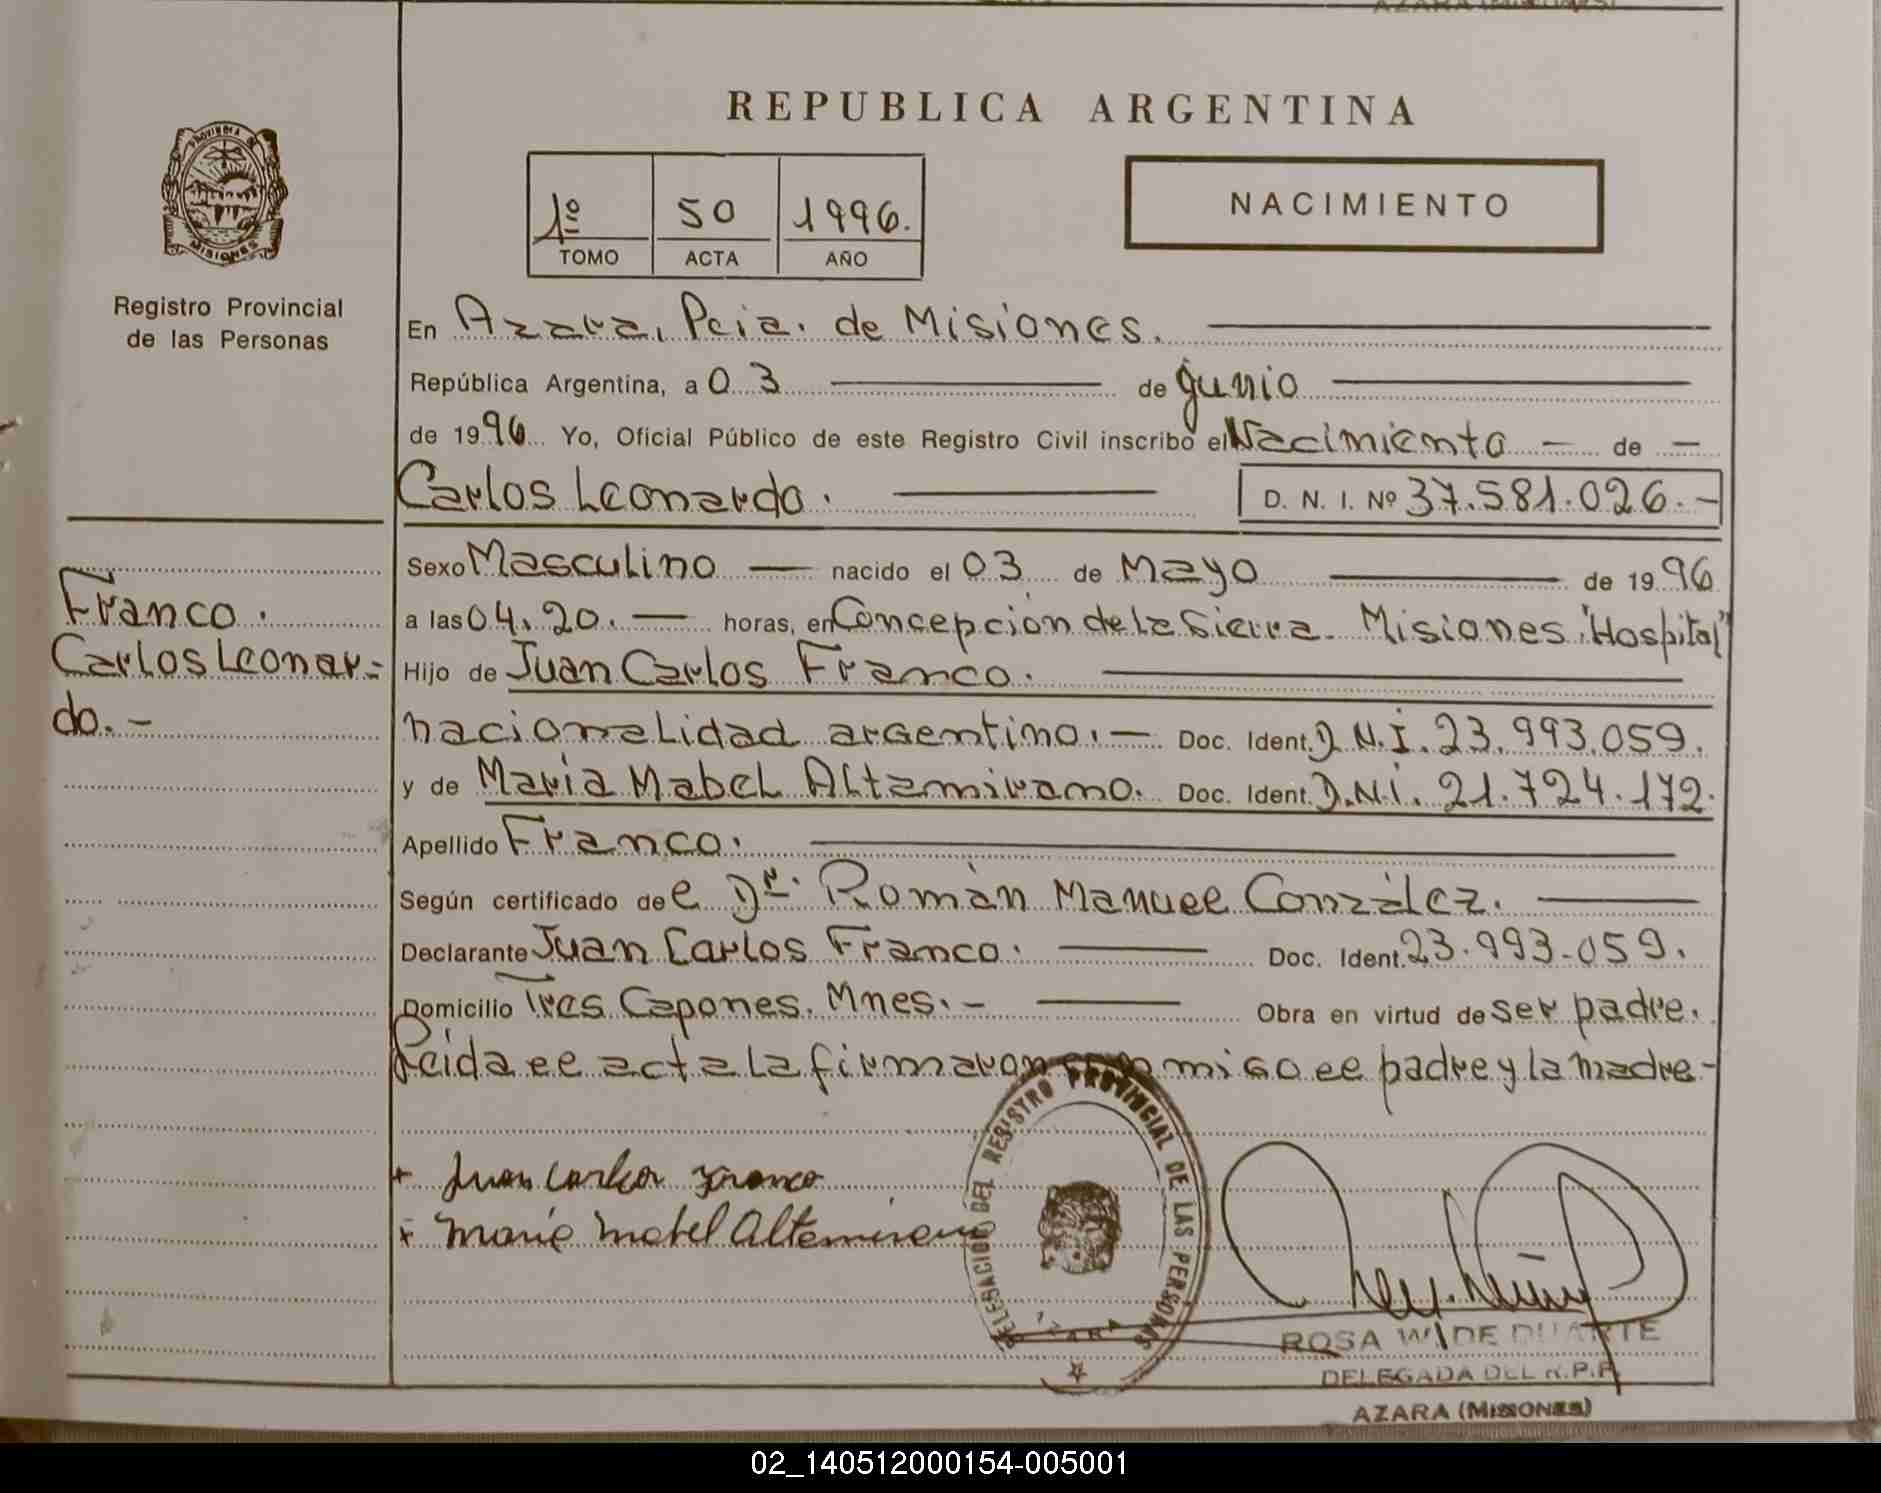 AZARA (MISIONES)
PROVINCIA DE
MISIONES
Registro Provincial
de las Personas
REPUBLICA ARGENTINA
1º 50 1996.
TOMO ACTA AÑO
NACIMIENTO
En Azara, Pcia. de Misiones.
República Argentina, a 03 de junio
de 1996 Yo, Oficial Público de este Registro Civil inscribo el Nacimiento — de —
Carlos Leonardo. D. N. I. Nº 37.581.026.-
Sexo Masculino — nacido el 03 de Mayo de 1996
a las 04.20. — horas, en Concepción de la Sierra. Misiones "Hospital"
Hijo de Juan Carlos Franco.
nacionalidad argentino. — Doc. Ident. D.N.I. 23.993.059.
y de María Mabel Altamirano. Doc. Ident. D.N.I. 21.724.172.
Apellido Franco.
Según certificado del Dr. Román Manuel González.
Declarante Juan Carlos Franco. Doc. Ident. 23.993.059.
Domicilio Tres Capones. Mnes.- Obra en virtud de ser padre.
Leída el acta la firmaron conmigo el padre y la madre-
Franco.
Carlos Leonar=
do.-
+ Juan Carlos Franco
+ María Mabel Altamirano
DELEGACION DEL REGISTRO PROVINCIAL DE LAS PERSONAS
AZARA
ROSA W. DE DUARTE
DELEGADA DEL R.P.P.
AZARA (MISIONES)
02_140512000154-005001